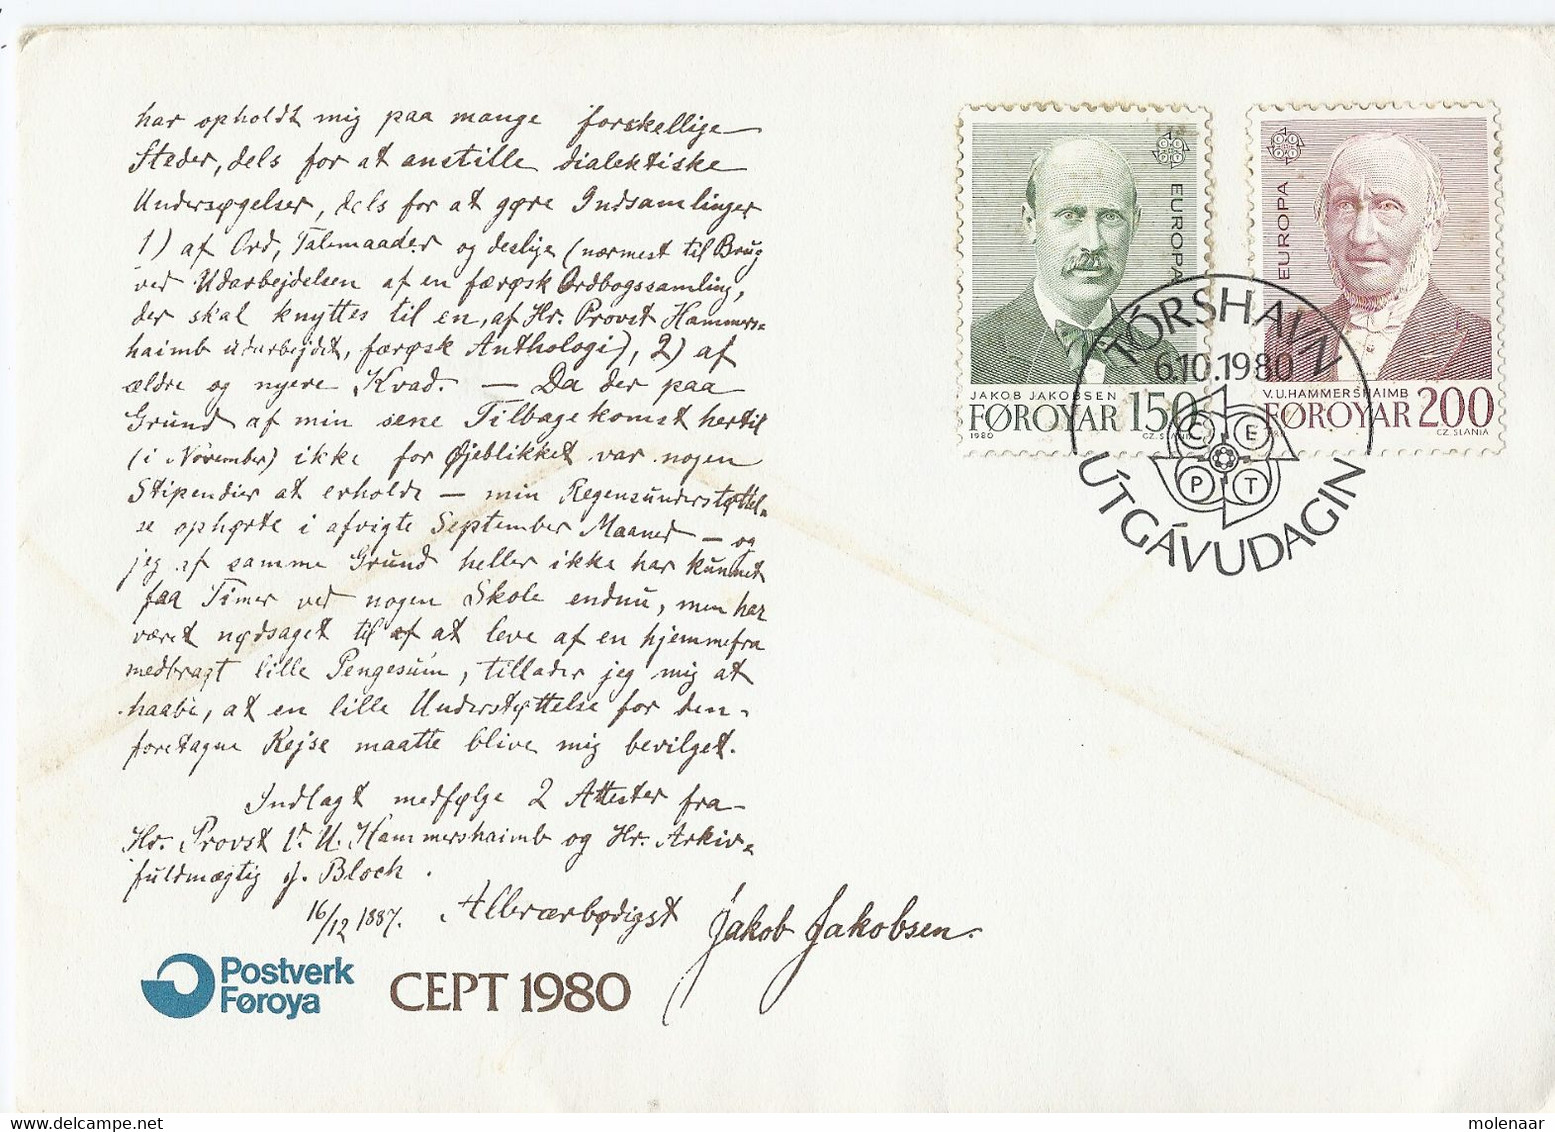 har opholdt mig paa mange forskellige
Steder, dels for at anstille dialektiske
Undersøgelser, dels for at gøre Indsamlinger
1) af Ord, Talemaader og deslige (nærmest til Brug
ved Udarbejdelsen af en færøsk Ordbogssamling,
der skal knyttes til en, af Hr. Provst Hammers=
haimb udarbejdet, færøsk Anthologi), 2) af
ældre og nyere Kvad. — Da der paa
Grund af min sene Tilbagekomst hertil
(i November) ikke for Øjeblikket var nogen
Stipendier at erholde — min Regensunderstøttel=
se ophørte i afvigte September Maaned — og
jeg af samme Grund heller ikke har kunnet
faa Timer ved nogen Skole endnu, men har
været nødsaget til at leve af en hjemmefra
medbragt lille Pengesum, tillader jeg mig at
haabe, at en lille Understøttelse for den
foretagne Rejse maatte blive mig bevilget.
Indlagt medfølge 2 Attester fra
Hr. Provst V. U. Hammershaimb og Hr. Arkiv=
fuldmægtig J. Bloch.
16/12 1887. Allerærbødigst Jakob Jakobsen.
Postverk
Føroya
CEPT 1980
EUROPA
JAKOB JAKOBSEN
FØROYAR 150
1980 CZ. SLANIA
EUROPA
V.U. HAMMERSHAIMB
FØROYAR 200
1980 CZ. SLANIA
TÓRSHAVN
6.10.1980
C E P T
ÚTGÁVUDAGIN
molenaar